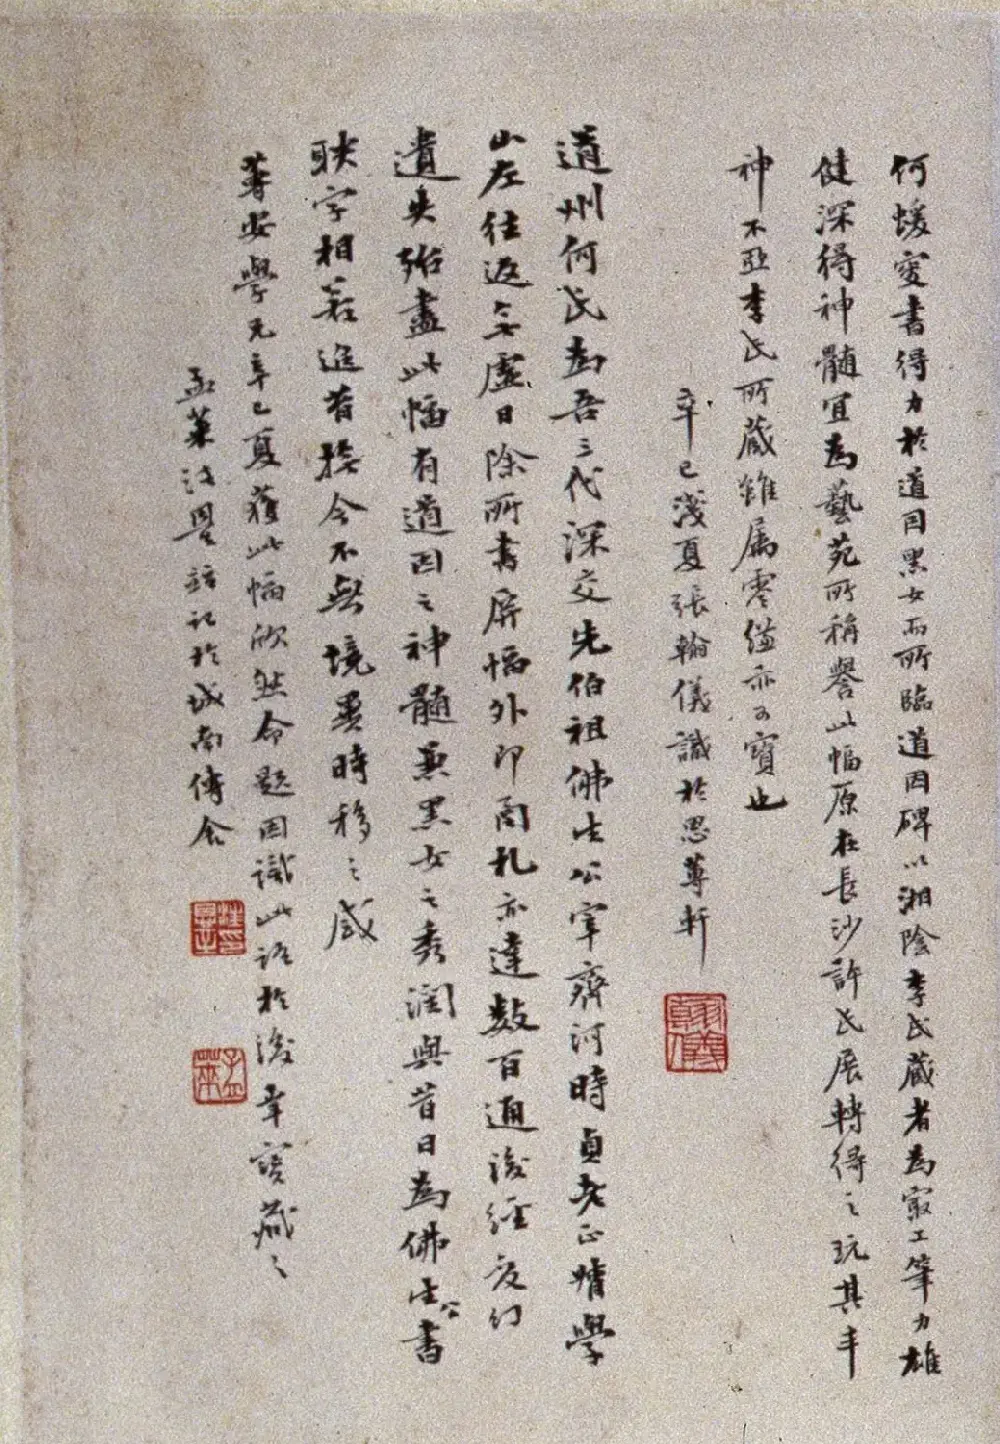 何蝯叟書得力於道因黑女而所臨道因碑以湘陰李氏藏者為最工筆力雄
健深得神髓宜為藝苑所稱譽此幅原在長沙許氏展轉得之玩其丰
神不亞李氏所藏雖屬零縑亦可寶也
辛巳淺夏張翰儀識於思蓴軒
翰儀
道州何氏為吾三代深交先伯祖佛生公宰齊河時貞老正瞔學
山左往返無虛日除所書屏幅外即函札亦達數百通後經夜幻
遺失殆盡此幅有道因之神髓兼黑女之秀潤與昔日為佛生公書
耿字相若追昔撫今不無境異時移之感
蓴安學兄辛巳夏獲此幅欣然命題因識此語於後幸寶藏之
孟萊汪 記於城南傳舍
孟萊